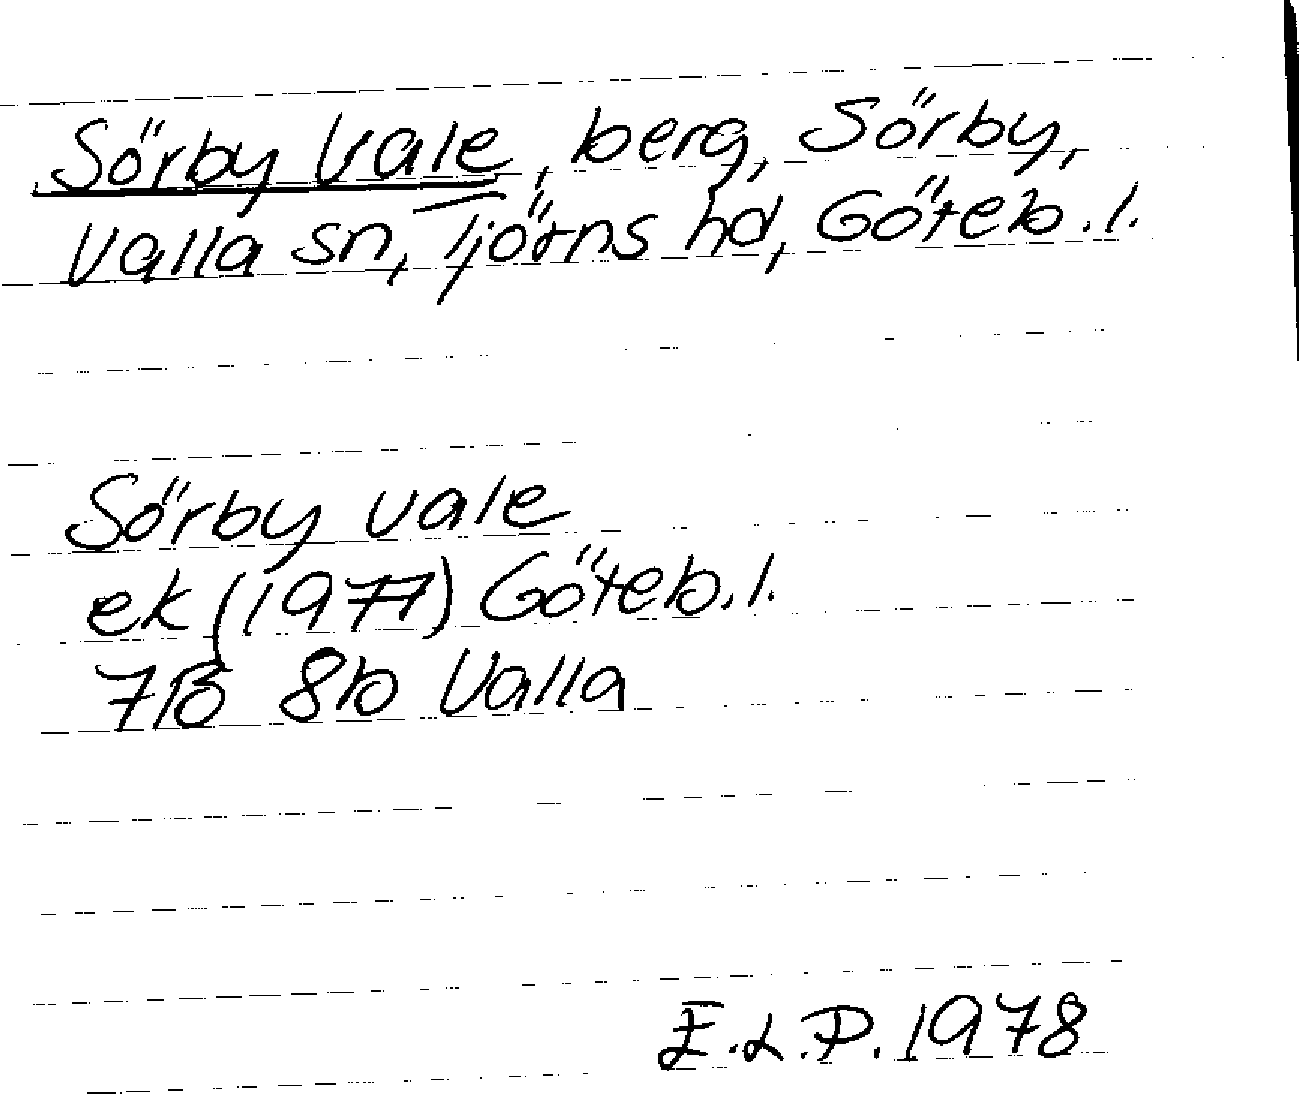 Sörby Vale, berg, Sörby,
Valla sn, Tjörns hd, Göteb. l.
Sörby vale
ek (1977) Göteb. l.
7B 8b Valla
E.L.P. 1978